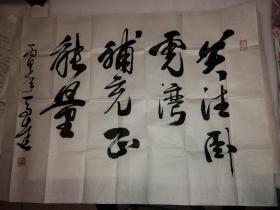 关注卧
虎湾
補充正
能量